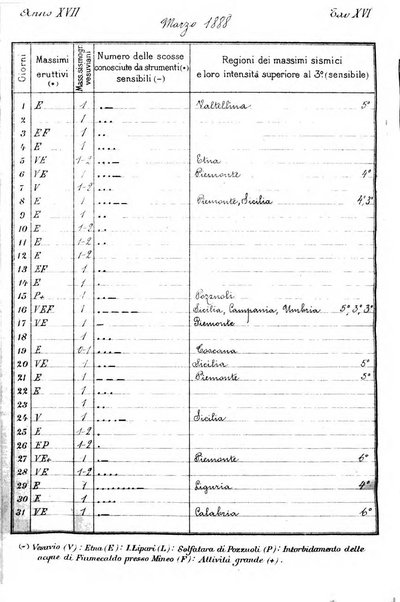 Anno XVII Tav XVI
Marzo 1888
Giorni Massimi eruttivi (*) Mass. sismogr. vesuviani Numero delle scosse conosciute da strumenti (•) sensibili (–) Regioni dei massimi sismici e loro intensità superiore al 3º (sensibile)
1 E 1 ..– Valtellina 5º
2 1 ...
3 EF 1 ..
4 E 1 ....
5 VE 1-2 ...– Etna
6 VE 1 ...–– Piemonte 4º
7 V 1-2 ...
8 E 1 ...–– Piemonte, Sicilia 4º,3º
9 E 1 ..
10 E 1-2 ....
11 E 1-2 ..
12 E 1-2 ....
13 EF 1 ..
14 E 1 .
15 P+ 1 ..– Pozzuoli
16 VEF 1 Sicilia, Campania, Umbria 5º,3º,3º
17 VE 1 Piemonte
18 1 ....
19 E 0-1 Toscana
20 VE 1 Sicilia 5º
21 E 1 Piemonte 5º
22 E 1
23 1 ...
24 V 1 Sicilia
25 E 1-2 .
26 EP 1-2 ..
27 VE+ 1 Piemonte 6º
28 VE 1-2 ....
29 E 1 Liguria 4º
30 E 1 ....
31 VE 1 Calabria 6º
(–) Vesuvio (V): Etna (E): I. Lipari (L): Solfatara di Pozzuoli (P): Intorbidamento delle
acque di Fiumecaldo presso Mineo (F): Attività grande (+).